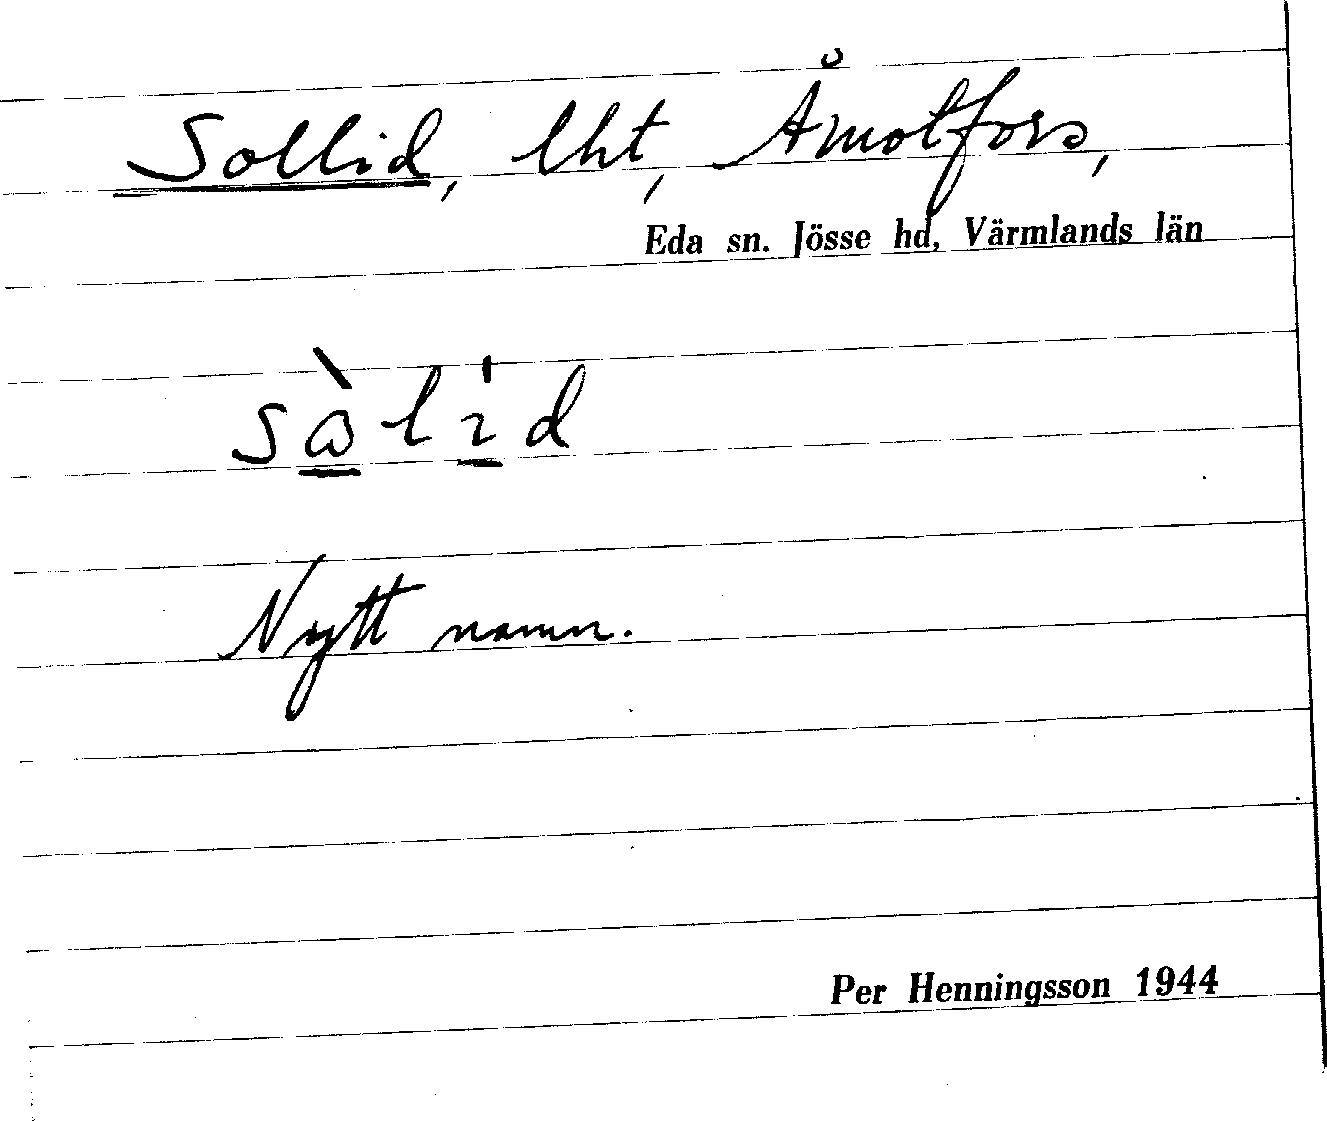 Sollid, lht, Åmotfors,
Eda sn. Jösse hd, Värmlands län
Nytt namn.
Per Henningsson 1944